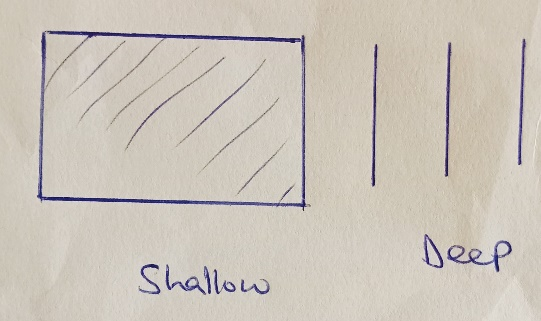 Shallow
Deep